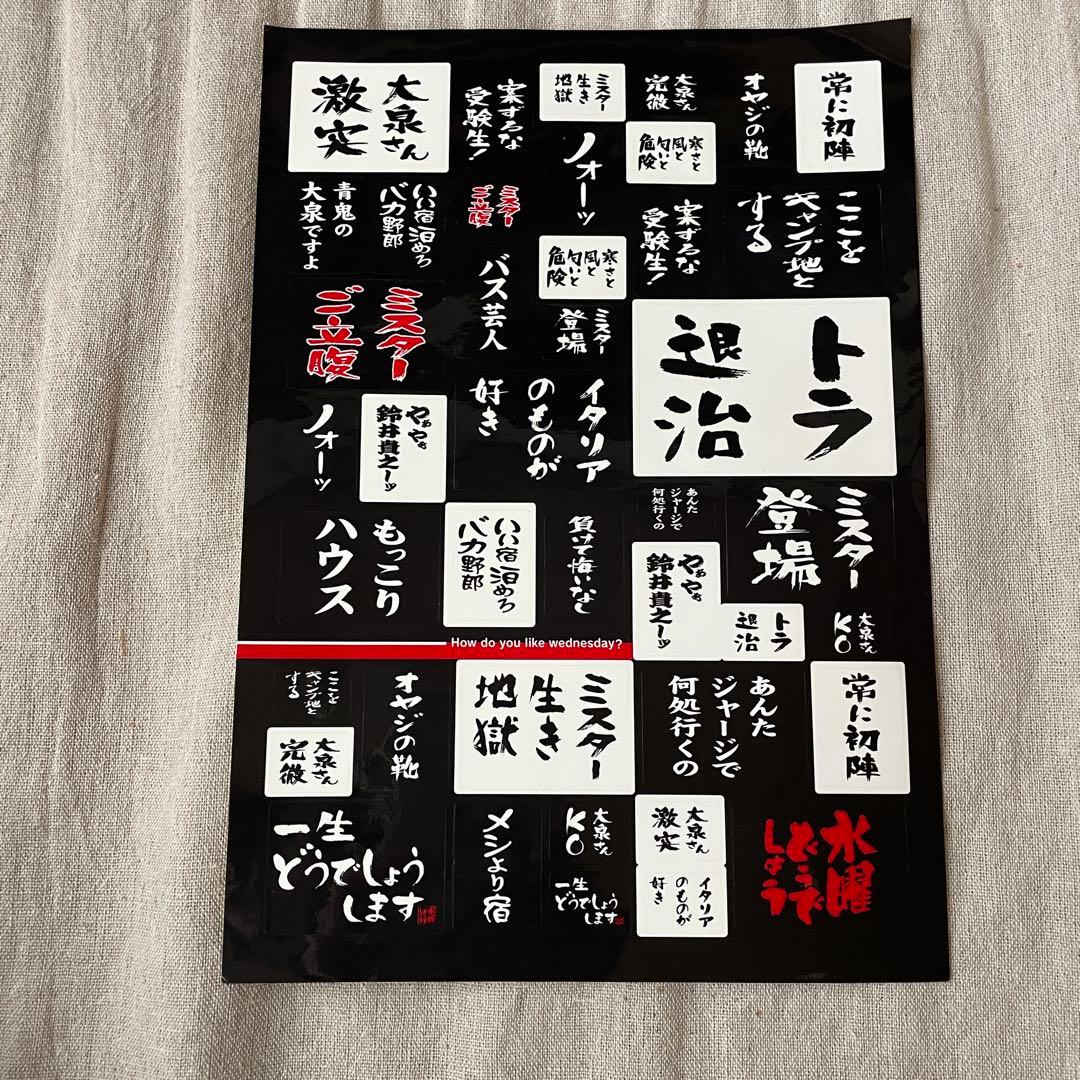 大泉さん
激突
案ずるな
受験生！
ミスター
生き
地獄
大泉さん
完徹
オヤジの靴
常に初陣
ノォーッ
寒さと
風と
匂いと
危険
青鬼の
大泉ですよ
いい宿泊めろ
バカ野郎
ミスター
ご立腹
案ずるな
受験生！
ここを
キャンプ地と
する
寒さと
風と
匂いと
危険
バス芸人
ミスター
登場
ミスター
ご立腹
トラ
退治
イタリア
のものが
好き
ノォーッ
やぁやぁ
鈴井貴之ーッ
あんた
ジャージで
何処行くの
ミスター
登場
もっこり
ハウス
いい宿泊めろ
バカ野郎
負けて悔いなし
やぁやぁ
鈴井貴之ーッ
トラ
退治
大泉さん
KO
How do you like wednesday?
ここを
キャンプ地と
する
オヤジの靴
ミスター
生き
地獄
あんた
ジャージで
何処行くの
常に初陣
大泉さん
完徹
一生
どうでしょう
します
メシより宿
大泉さん
KO
大泉さん
激突
水曜
どうで
しょう
一生
どうでしょう
します
イタリア
のものが
好き